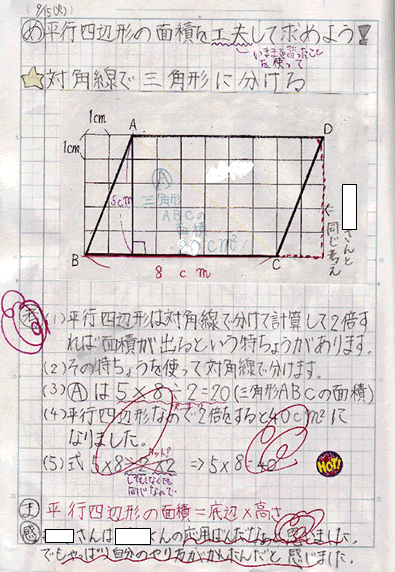 9/15(火)
め 平行四辺形の面積を工夫して求めよう!
いままで習ったこと
を使って
☆対角線で三角形に分ける
1cm
A
D
1cm
5cm
A
三角形
ABCの
面積
20cm²
さんと
同じ考え
B
8cm
C
考 (1)平行四辺形は対角線で分けて計算して2倍す
れば面積が出るという特ちょうがあります。
(2)その特ちょうを使って対角線で分けます。
(3)Aは5×8÷2=20(三角形ABCの面積)
(4)平行四辺形なので2倍をすると40cm²に
なりました。
カット
(5)式 5×8÷2×2 ⇒5×8=40
してもしなくても
同じなので
HOT!
ま 平行四辺形の面積=底辺×高さ
感 さんは くんの応用
でもやっぱり自分のやり方がかんたんだと感じました。